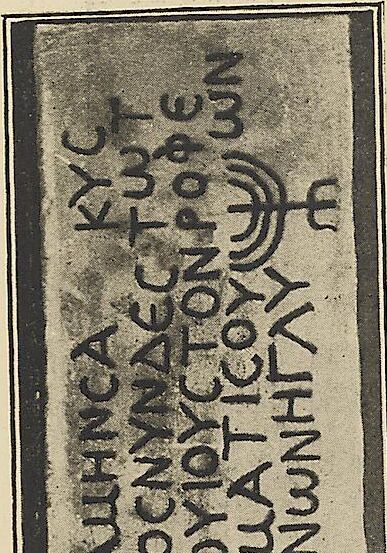 ΑΜΗΝCΑ ΚΥC
ΟCΝΥΝΔΕCΤωΤ
ΟΥΙΟΥCΤΟΝΡΟΦΕ
ΜΑΤΙCΟΥ ωΝ
ΝωΝΗΓΛΥ